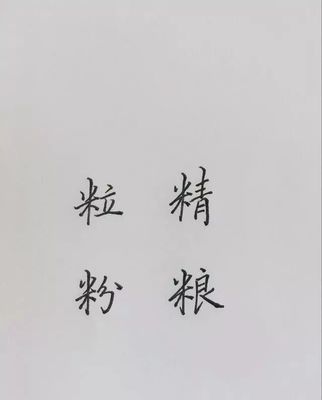 粒 精
粉 粮